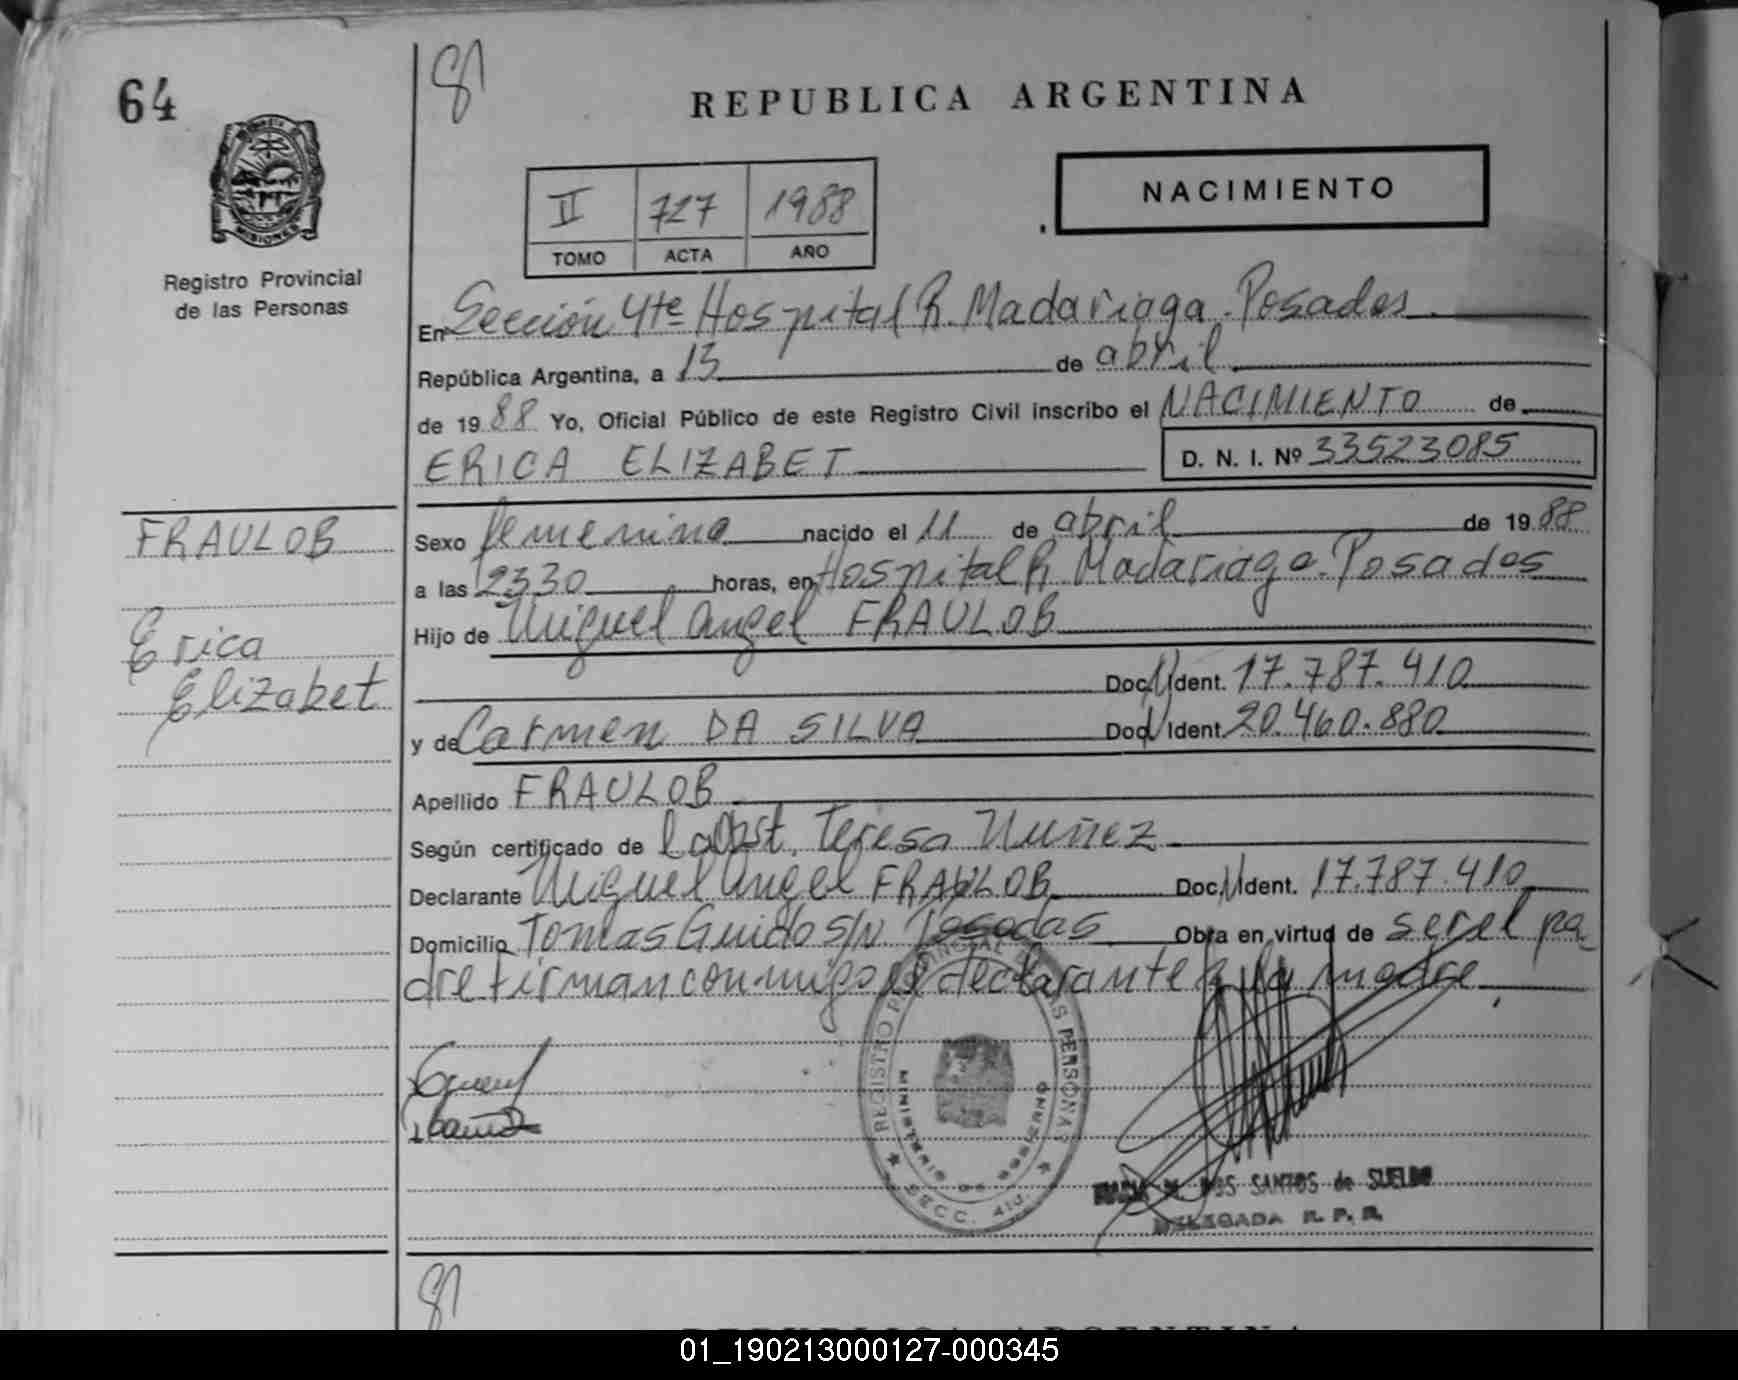 64
REPUBLICA ARGENTINA
MISIONES
Registro Provincial
de las Personas
II 727 1988
TOMO ACTA AÑO
NACIMIENTO
En Sección 4te Hospital R. Madariaga. Posadas
República Argentina, a 13 de abril
de 1988 Yo, Oficial Público de este Registro Civil inscribo el NACIMIENTO de
ERICA ELIZABET D. N. I. Nº 33523085
FRAULOB
Erica
Elizabet
Sexo femenino nacido el 11 de abril de 1988
a las 2330 horas, en Hospital R. Madariaga. Posadas
Hijo de Miguel Angel FRAULOB
Doc. Ident. 17.787.410
y de Carmen DA SILVA Doc. Ident. 20.460.880
Apellido FRAULOB
Según certificado de la Obst. Teresa Nuñez
Declarante Miguel Angel FRAULOB Doc. Ident. 17.787.410
Domicilio Tomas Guido S/N Posadas Obra en virtud de ser el pa
dre firman conmigo el declarante y la madre
REGISTRO PROVINCIAL DE LAS PERSONAS
MINISTERIO DE GOBIERNO
SECC. 4ta.
DOS SANTOS de SUELDO
DELEGADA R. P. P.
REPUBLICA ARGENTINA
01_190213000127-000345